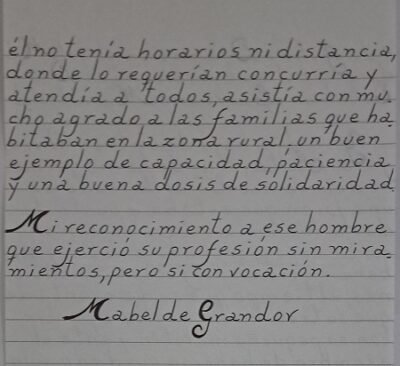 él no tenía horarios ni distancia,
donde lo requerían concurría y
atendía a todos, asistía con mu-
cho agrado a las familias que ha-
bitaban en la zona rural, un buen
ejemplo de capacidad, paciencia
y una buena dosis de solidaridad.
Mi reconocimiento a ese hombre
que ejerció su profesión sin mira-
mientos, pero si con vocación.
Mabel de Grandor